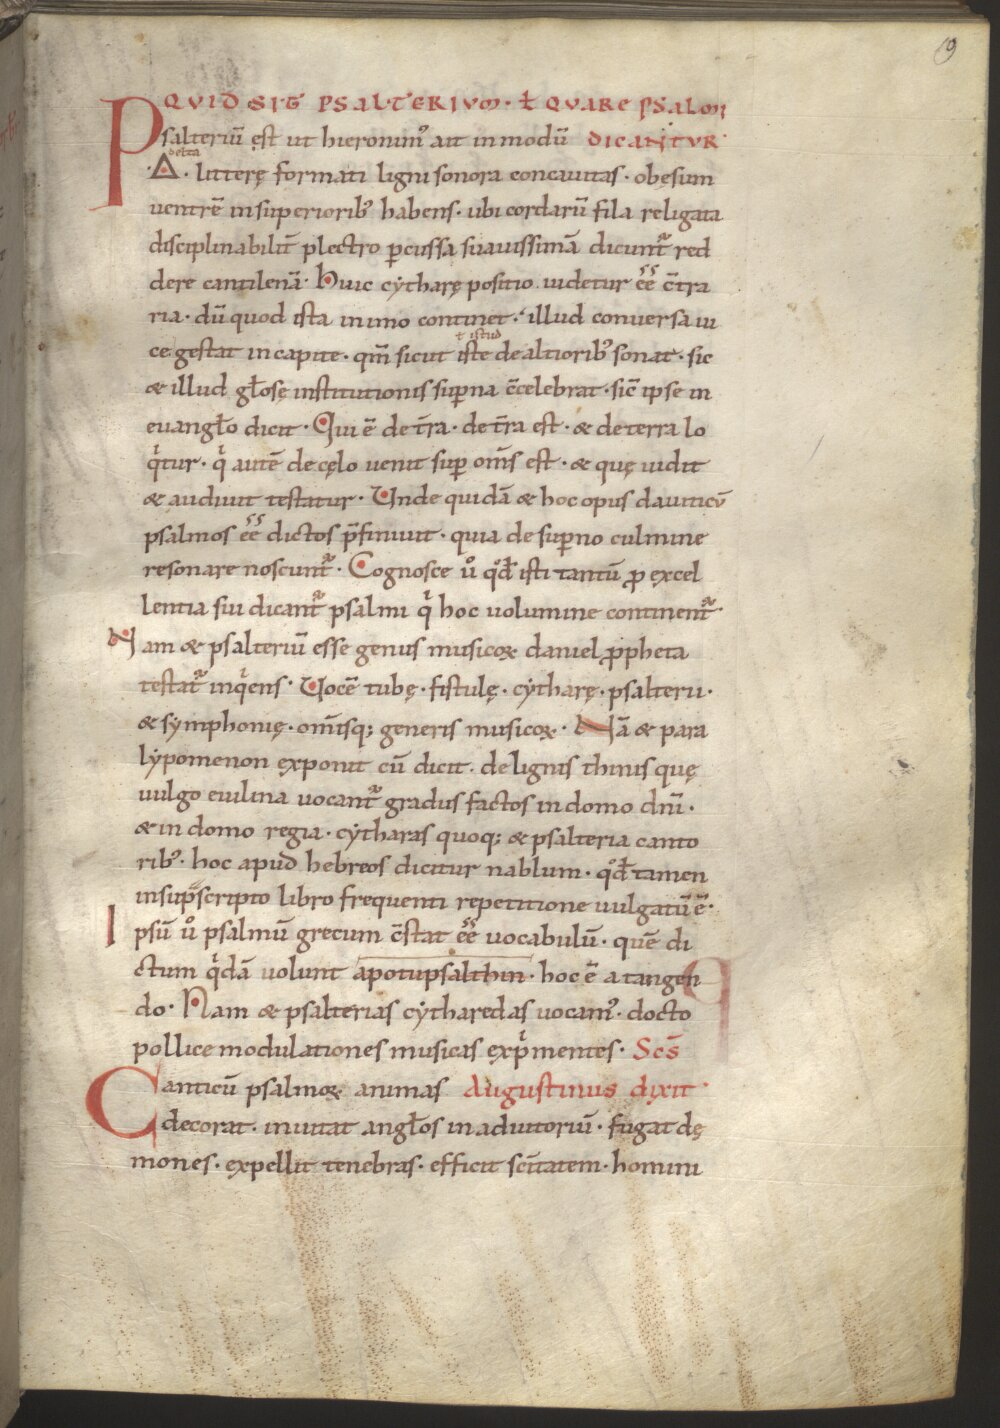 19
QVID SIT PSALTERIVM · ł QVARE PSALMI
Psalteriū ęst ut hieronim᾿ ait in modū DICANTVR
delta
· Δ · litterę formati ligni sonora concauitas · obesum
uentrē in superiorib᾿ habens · ubi cordarū fila religata
disciplinabilit̄ plectro ꝑcussa suauissimā dicunt᷑ red
dere cantilenā · Huic cytharę positio uidetur ee̅ c̄tra
ria · dū quod ista in imo continet · illud conuersa ui
ł istud
ce gestat in capite · qm̄ sicut iste de altiorib᾿ sonat · sic
& illud gl̄osę institutionis suꝑna c̄celebrat · sic̄ ipse in
euangl̄o dicit · Qui ē de t̄ra · de t̄ra est · & de terra lo
qͥtur · qͥ autē de cęlo uenit suꝑ om̄s est · & quę uidit
& audiuit testatur · Unde quidā & hoc opus dauiticū
psalmos ee̅ dictos p̄finiuit · quia de suꝑno culmine
resonare noscunt᷑ · Cognosce ů qđ isti tantū ꝓ excel
lentia sui dicant᷑ psalmi qͥ hoc uolumine continent᷑ ·
Nam & psalteriū esse genus musicoꝝ daniel ꝓpheta
testat᷑ inqͥens · Uocē tubę · fistulę · cytharę · psalterii ·
& symphonię · om̄isq; generis musicoꝝ · Nā & para
lypomenon exponit cū dicit · de lignis thinis quę
uulgo euilina uocant᷑ gradus factos in domo dn̄i ·
& in domo regia · cytharas quoq; & psalteria canto
rib᾿ · hoc apud hebreos dicitur nablum · qđ tamen
in sup̄scripto libro frequenti repetitione uulgatū ē ·
Ipsū ů psalmū grecum c̄stat ee̅ uocabulū · quē di
ctum qͥdā uolunt apotupsalthin · hoc ē a tangen
do · Nam & psalterias cytharedas uocam᾿ · docto
pollice modulationes musicas expͥmentes · Scs̄
Canticū psalmoꝝ animas Augustinus dixit ·
decorat · inuitat angl̄os in adiutoriū · fugat dę
mones · expellit tenebras · efficit sc̄itatem · homini